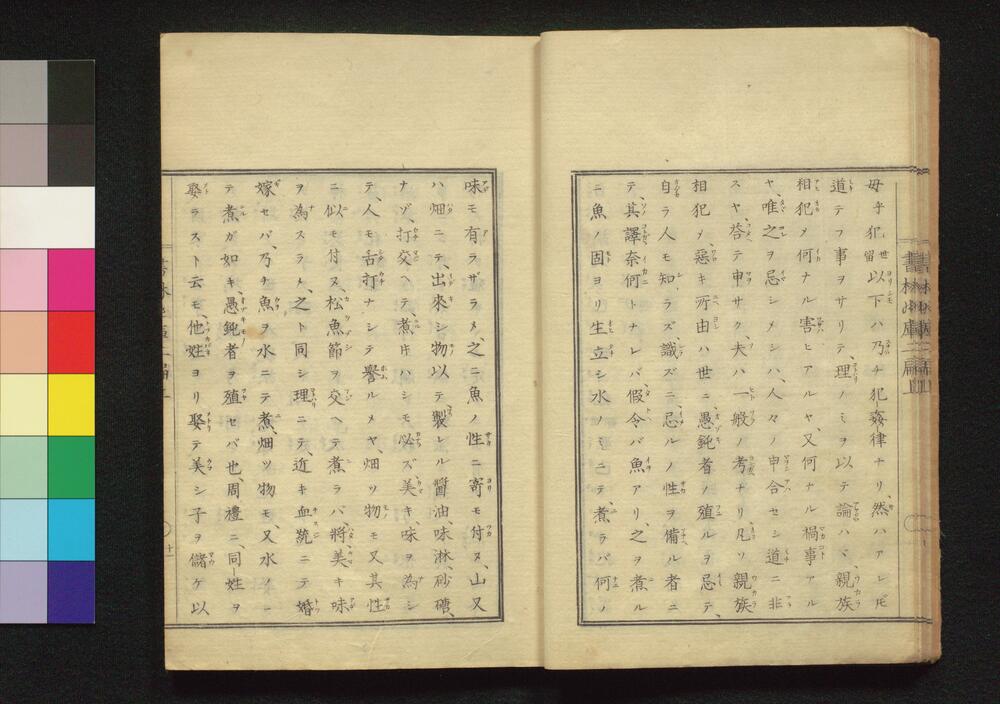 母ヲ犯世留以下ハ乃チ犯姦律ナリ、然ハアレ𪜈
道テフ事ヲサリテ、理ノミヲ以テ論ハヾ、親族
相犯メ何ナル害ヒアルヤ、又何ナル禍事アル
ヤ、唯之ヲ忌シメシハ、人々ノ申合セシ道ニ非
スヤ、答テ申サク、夫ハ一般ノ考ナリ凡ソ親族
相犯メ、惡キ所由ハ世ニ愚鈍者ノ殖ルヲ忌テ、
自ラ人モ知ラズ、識ズニ、忌ルノ性ヲ備ル者ニ
テ、其譯奈何トナレバ、假令バ魚アリ、之ヲ煮ル
ニ魚ノ固ヨリ生立シ水ノミニテ、煮ラバ何ノ
味モ有ラザラメ、之ニ魚ノ性ニ寄モ付ヌ、山又
ハ畑ニテ、出來シ物以テ、製レル醤油、味淋、砂糖、
ナゾ、打交ヘテ、煮𪜈ハシモ必ズ美キ、味ヲ為シ
テ、人モ舌打ナシテ譽ルメヤ、畑ツ物モ又其性
ニ似モ付ヌ、松魚節ヲ交ヘテ煮ラバ、將美キ味
ヲ為スラメ、之ト同シ理ニテ、近キ血統ニテ婚
嫁セバ、乃チ魚ヲ水ニテ煮、畑ツ物モ、又水イニ
テ煮ガ如キ愚鈍者ヲ殖セバ也、周禮ニ、同姓ヲ
娶ラスト云モ、他姓ヨリ娶テ美シ子ヲ儲ケ以